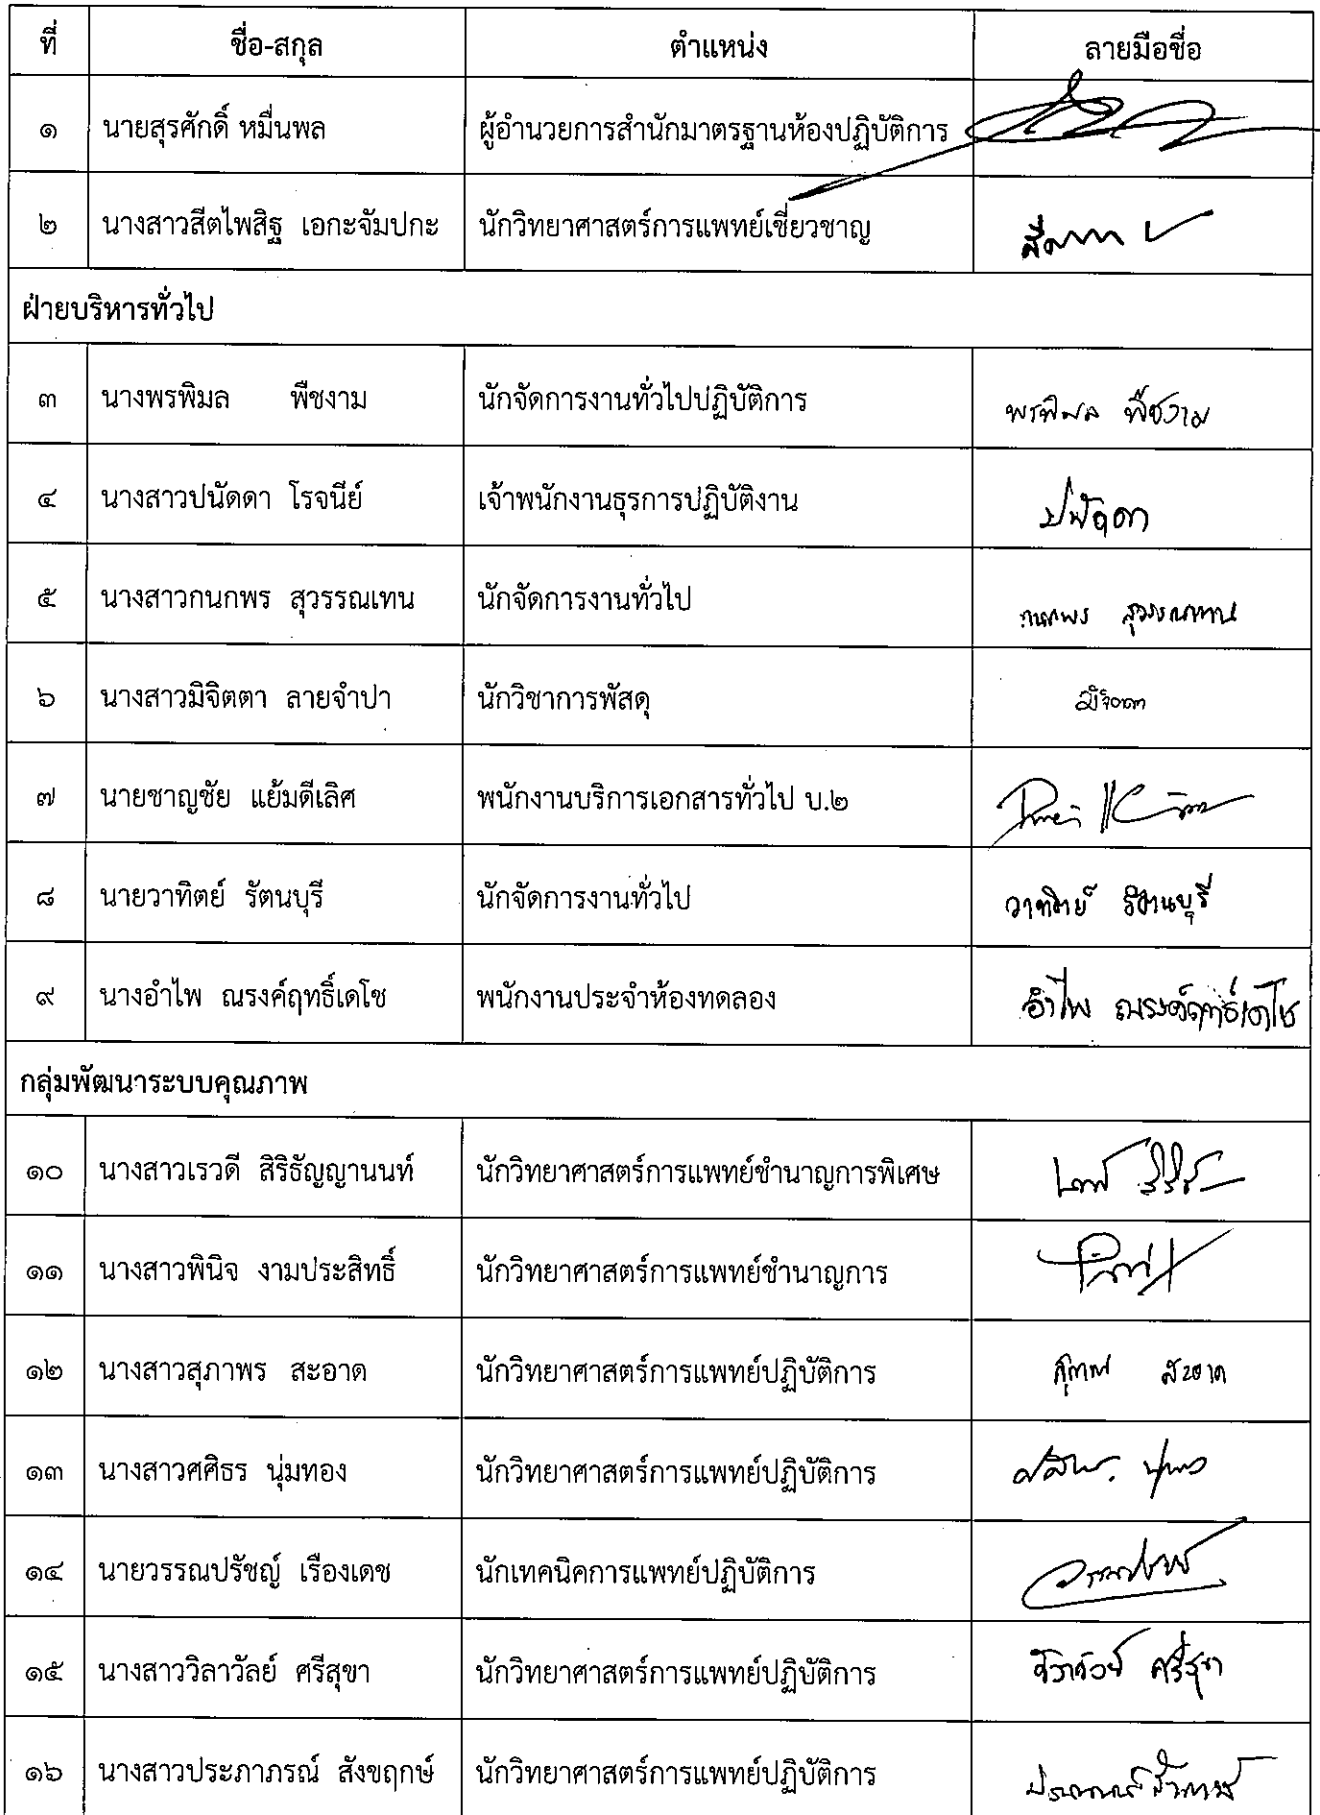 ที่ ชื่อ-สกุล ตำแหน่ง ลายมือชื่อ
๑ นายสุรศักดิ์ หมื่นพล ผู้อำนวยการสำนักมาตรฐานห้องปฏิบัติการ
๒ นางสาวสีตไพสิฐ เอกะจัมปกะ นักวิทยาศาสตร์การแพทย์เชี่ยวชาญ
ฝ่ายบริหารทั่วไป
๓ นางพรพิมล พืชงาม นักจัดการงานทั่วไปปฏิบัติการ พรพิมล พืชงาม
๔ นางสาวปนัดดา โรจนีย์ เจ้าพนักงานธุรการปฏิบัติงาน ปนัดดา
๕ นางสาวกนกพร สุวรรณเทน นักจัดการงานทั่วไป กนกพร สุวรรณเทน
๖ นางสาวมิจิตตา ลายจำปา นักวิชาการพัสดุ มิจิตตา
๗ นายชาญชัย แย้มดีเลิศ พนักงานบริการเอกสารทั่วไป บ.๒
๘ นายวาทิตย์ รัตนบุรี นักจัดการงานทั่วไป วาทิตย์ รัตนบุรี
๙ นางอำไพ ณรงค์ฤทธิ์เดโช พนักงานประจำห้องทดลอง อำไพ ณรงค์ฤทธิ์เดโช
กลุ่มพัฒนาระบบคุณภาพ
๑๐ นางสาวเรวดี สิริธัญญานนท์ นักวิทยาศาสตร์การแพทย์ชำนาญการพิเศษ
๑๑ นางสาวพินิจ งามประสิทธิ์ นักวิทยาศาสตร์การแพทย์ชำนาญการ
๑๒ นางสาวสุภาพร สะอาด นักวิทยาศาสตร์การแพทย์ปฏิบัติการ สุภาพร สะอาด
๑๓ นางสาวศศิธร นุ่มทอง นักวิทยาศาสตร์การแพทย์ปฏิบัติการ
๑๔ นายวรรณปรัชญ์ เรืองเดช นักเทคนิคการแพทย์ปฏิบัติการ
๑๕ นางสาววิลาวัลย์ ศรีสุขา นักวิทยาศาสตร์การแพทย์ปฏิบัติการ วิลาวัลย์ ศรีสุขา
๑๖ นางสาวประภาภรณ์ สังขฤกษ์ นักวิทยาศาสตร์การแพทย์ปฏิบัติการ